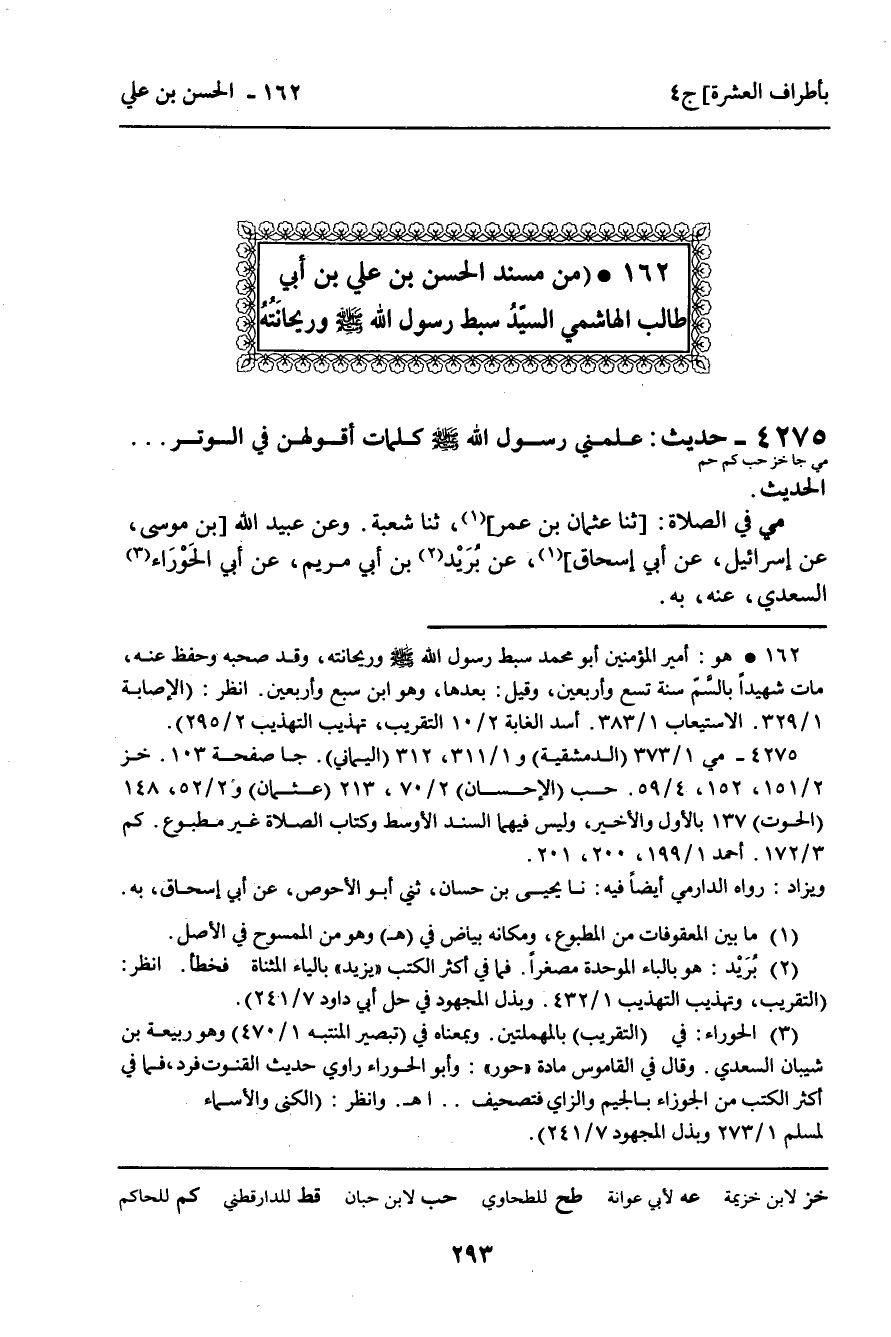 بأطراف العشرة] ج٤
١٦٢ - الحسن بن علي
١٦٢ • (من مسند الحسن بن علي بن أبي
طالب الهاشمي السيّدُ سبط رسول الله ﷺ وريحانَتُهُ
٤٢٧٥ - حديث: علمني رسول الله ﷺ كلمات أقولهن في الوتر . . .
مي جا خز حب كم حم
الحديث.
مي في الصلاة: [ثنا عثمان بن عمر](١)، ثنا شعبة. وعن عبيد الله [بن موسى،
عن إسرائيل، عن أبي إسحاق](١)، عن بُرَيْد(٢) بن أبي مريم، عن أبي الحَوْرَاء(٣)
السعدي، عنه، به.
١٦٢ • هو: أمير المؤمنين أبو محمد سبط رسول الله ﷺ وريحانته، وقد صحبه وحفظ عنه،
مات شهيداً بالسُّمّ سنة تسع وأربعين، وقيل: بعدها، وهو ابن سبع وأربعين. انظر: (الإصابة
٣٢٩/١. الاستيعاب ٣٨٣/١. أسد الغابة ١٠/٢ التقريب، تهذيب التهذيب ٢٩٥/٢).
٤٢٧٥ - مي ٣٧٣/١ (الدمشقية) و ٣١١/١، ٣١٢ (اليماني). جا صفحة ١٠٣. خز
١٥١/٢، ١٥٢، ٥٩/٤. حب (الإحسان) ٧٠/٢، ٢١٣ (عثمان) و٥٢/٢، ١٤٨
(الحوت) ١٣٧ بالأول والأخير، وليس فيهما السند الأوسط وكتاب الصلاة غير مطبوع. كم
١٧٢/٣. أحمد ١٩٩/١، ٢٠٠، ٢٠١.
ويزاد: رواه الدارمي أيضاً فيه: نا يحيى بن حسان، ثني أبو الأحوص، عن أبي إسحاق، به.
(١) ما بين المعقوفات من المطبوع، ومكانه بياض في (هـ) وهو من الممسوح في الأصل.
(٢) بُرَيْد: هو بالباء الموحدة مصغراً. فما في أكثر الكتب «يزيد» بالياء المثناة فخطأ. انظر:
(التقريب، وتهذيب التهذيب ٤٣٢/١. وبذل المجهود في حل أبي داود ٢٤١/٧).
(٣) الحوراء: في (التقريب) بالمهملتين. وبمعناه في (تبصير المنتبه ٤٧٠/١) وهو ربيعة بن
شيبان السعدي. وقال في القاموس مادة «حور»: وأبو الحوراء راوي حديث القنوت فرد، فما في
أكثر الكتب من الجوزاء بالجيم والزاي فتصحيف . . ا هـ. وانظر: (الكنى والأسماء
لمسلم ٢٧٣/١ وبذل المجهود ٢٤١/٧).
خز لابن خزيمة عه لأبي عوانة طح للطحاوي حب لابن حبان قط للدارقطني كم للحاكم
٢٩٣